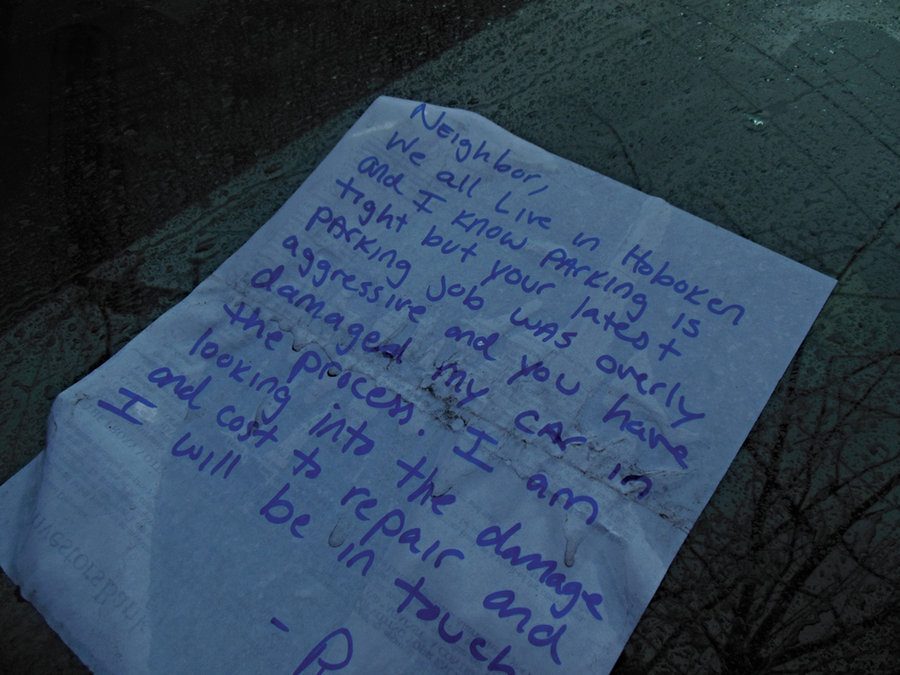 Neighbor,
We all Live in Hoboken
and I know PARKING is
tight but your latest
PARKING Job WAS overly
aggressive and you have
damaged my CAR in
the process. I am
looking into the damage
and cost to repair and
I will be in touch
- R